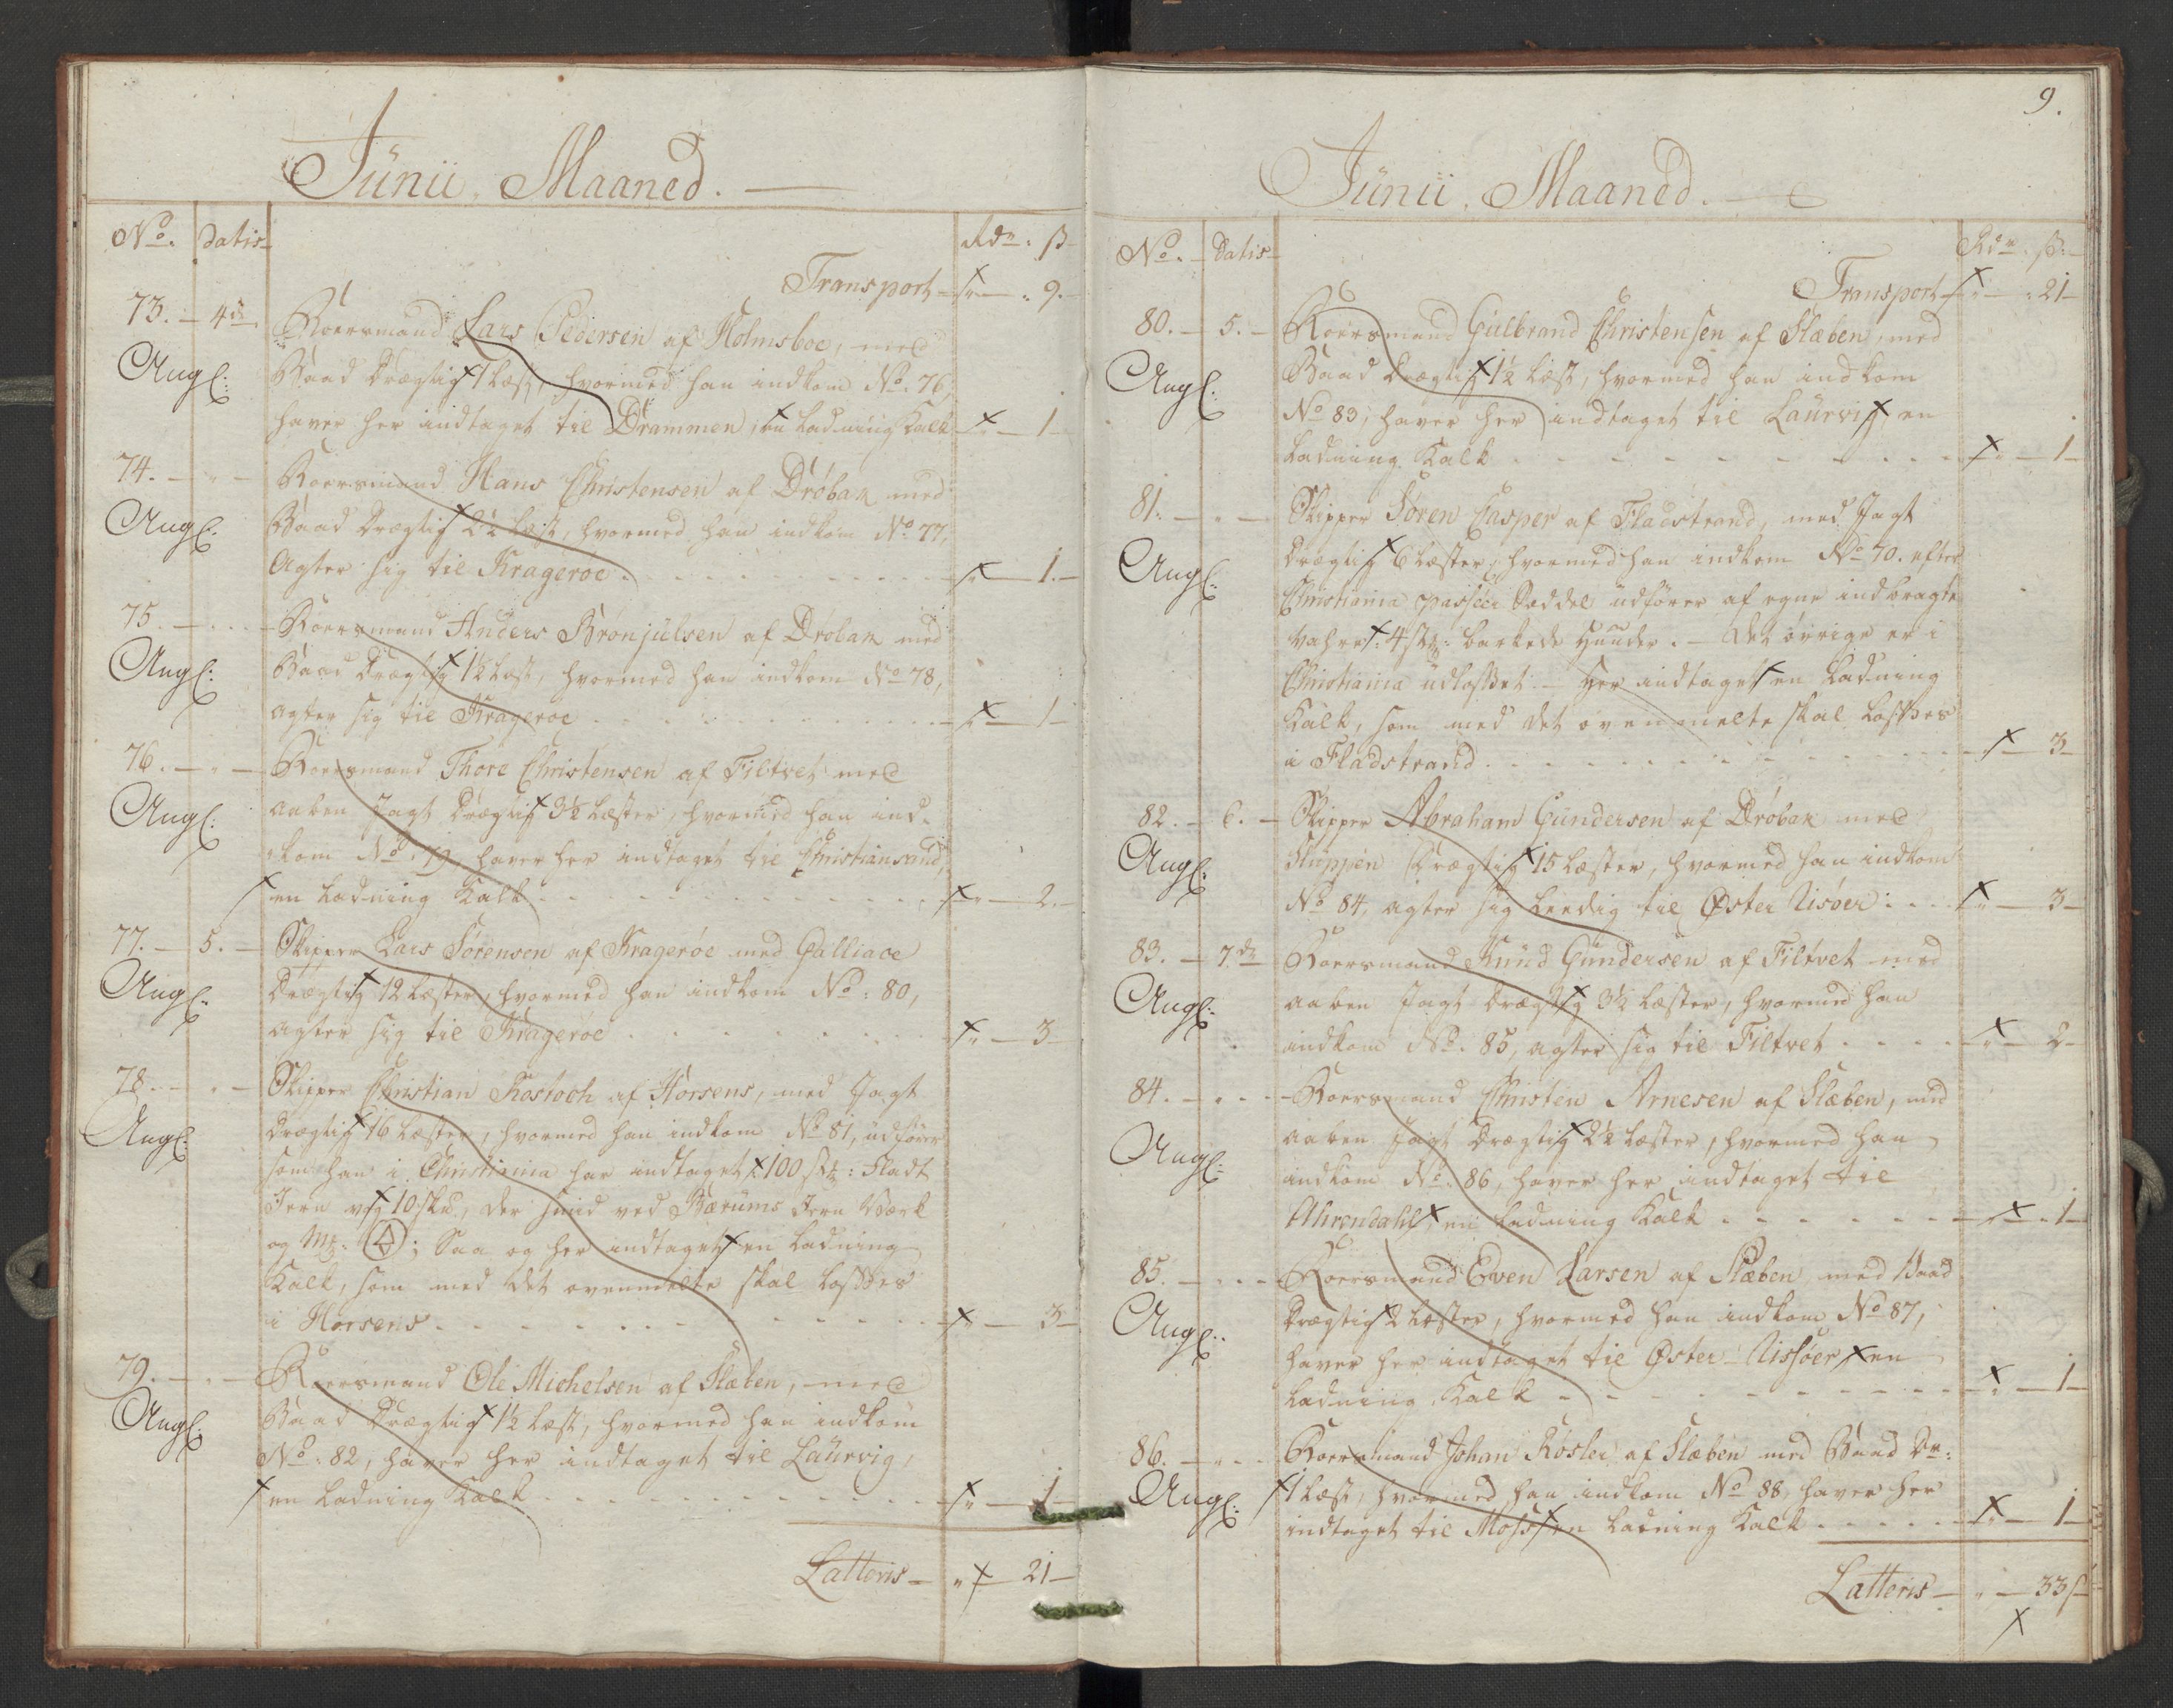 Junii Maaned.
No. Datis Rdr. ß
Transport " 9.
73. 4de Roersmand Lars Pedersen af Holmsboe, med
Angl: Baad drægtig 1 Læst, hvormed han indkom No. 76,
haver her indtaget til Drammen, en Ladning Kalk " 1
74. " Roersmand Hans Christensen af Drøbak med
Angl: Baad drægtig 2½ Læst, hvormed han indkom No. 77,
Agter sig til Krageroe " 1.
75. " Roersmand Anders Brønjulsen af Drøbak med
Angl: Baad drægtig 1½ Læst, hvormed han indkom No. 78,
agter sig til Krageroe " 1
76. " Roersmand Thore Christensen af Filtvet med
Angl: aaben Jagt drægtig 3½ Læster, hvormed han ind-
kom No. 79, haver her indtaget til Christiansand,
en Ladning Kalk " 2.
77. 5. Skipper Lars Sørensen af Kragerøe med Galliace
Angl: drægtig 12 Læster, hvormed han indkom No: 80,
agter sig til Kragerøe " 3
78. " Skipper Christian Rostoch af Horsens, med Jagt
Angl: drægtig 16 Læster, hvormed han indkom No 81, udfører
som han i Christiania har indtaget 100 stk: Stadt
Jern 10 der smid ved Bærums Jern Værk
og Mk: 4; Saa og her indtaget en Ladning
Kalk, som med det ovenmelte skal losses
i Horsens " 3
79. " Roersmand Ole Michelsen af Slæben, med
Angl: Baad drægtig 1½ Læst, hvormed han indkom
No: 82, haver her indtaget til Laurvig,
en Ladning Kalk " 1
Latteris " 21
9.
Junii Maaned.
No. Datis Rdr ß.
Transport " 21
80. 5. Roersmand Gulbrand Christensen af Slæben, med
Angl: Baad drægtig 1½ Læst, hvormed han indkom
No 83, haver her indtaget til Laurvig en
Ladning Kalk " 1
81. " Skipper Søren Casper af Fladstrand, med Jagt
Angl: drægtig 6 Læster, hvormed han indkom No 70. efter
Christiania passeer Seddel udfører af egne indbragte
Vahre: 4 stk: barkede Huuder. Det øvrige er i
Christiania udlosset. Her indtaget en Ladning
Kalk, som med det ovenmelte skal losses
i Fladstrand " 3
82. 6. Skipper Abraham Gundersen af Drøbak med
Angl: Skuppen drægtig 15 Læster, hvormed han indkom
No 84, agter sig Leedig til Øster Risøer " 3
83. 7de Roersmand Knud Gundersen af Filtvet med
Angl: aaben Jagt drægtig 3½ Læster, hvormed han
indkom No. 85, agter sig til Filtvet " 2
84. " Roersmand Christen Arnesen af Slæben, med
Angl: aaben Jagt drægtig 2½ Læster, hvormed han
indkom No. 86, haver her indtaget til
Ahrendahl, en Ladning Kalk " 1
85. " Roersmand Even Larsen af Slæben, med Baad
Angl: drægtig 2 Læster, hvormed han indkom No 87,
haver her indtaget til Øster Rissøer en
Ladning Kalk " 1
86. " Roersmand Johan Røsler af Slæben med Baad dr:
Angl: 1 Læst, hvormed han indkom No 88, haver her
indtaget til Moss en Ladning Kalk " 1
Latteris " 33